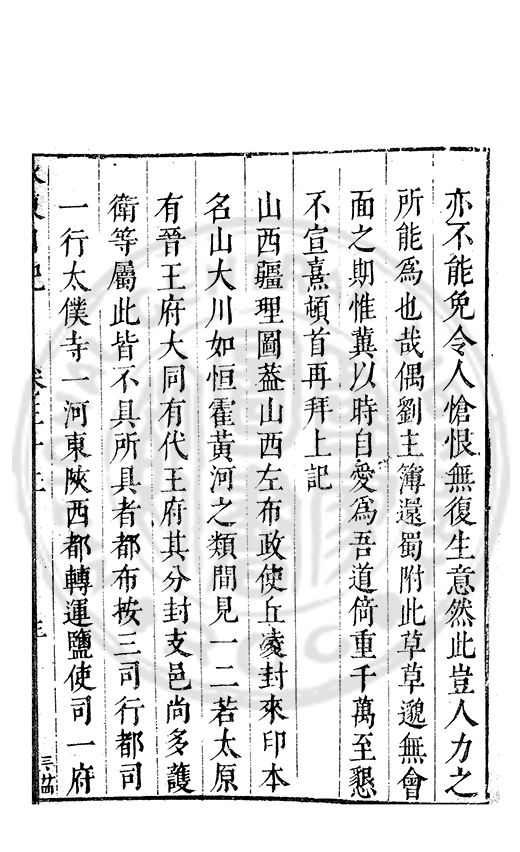 亦不能免令人愴恨無復生意然此豈人力之
所能爲也哉偶劉主簿還蜀附此草草邈無會
面之期惟冀以時自愛爲吾道倚重千萬至懇
不宣熹頓首再拜上記
山西疆理圖葢山西左布政使丘凌封來印本
名山大川如恒霍黃河之類間見一二若太原
有晉王府大同有代王府其分封支邑尚多護
衛等屬此皆不具所具者都布按三司行都司
一行太僕寺一河東陝西都轉運鹽使司一府